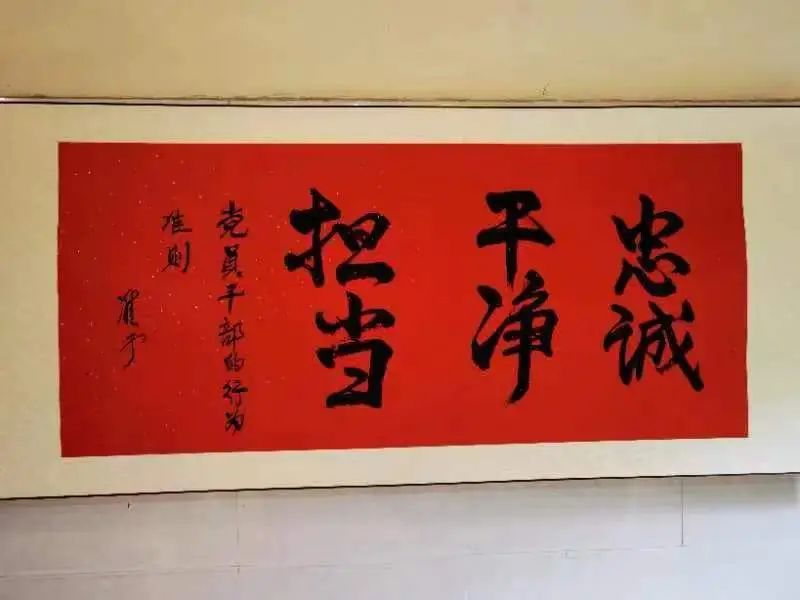 忠诚
干净
担当
党员干部的行为
准则